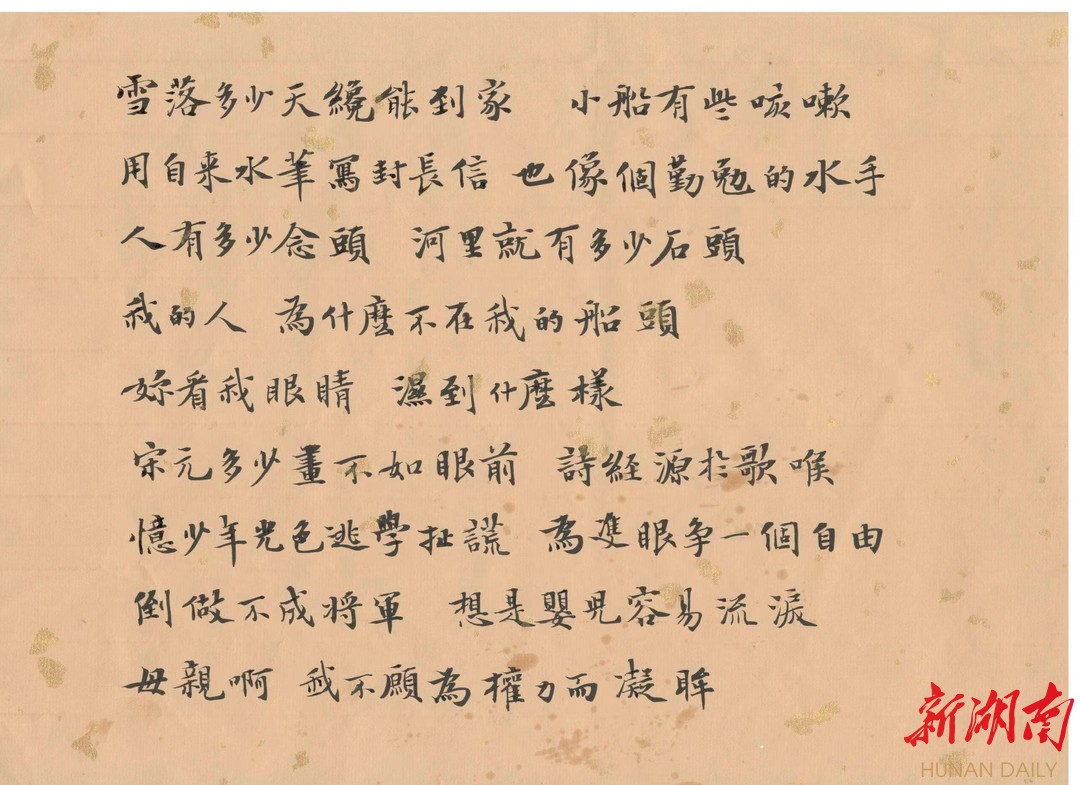 雪落多少天纔能到家　小船有些咳嗽
用自来水筆寫封長信　也像個勤勉的水手
人有多少念頭　河里就有多少石頭
我的人　為什麼不在我的船頭
妳看我眼睛　濕到什麼樣
宋元多少畫不如眼前　詩經源於歌喉
憶少年光色逃學扯謊　為隻眼争一個自由
倒做不成將軍　想是嬰兒容易流淚
母親啊　我不願為權力而凝眸
新湖南
HUNAN DAILY